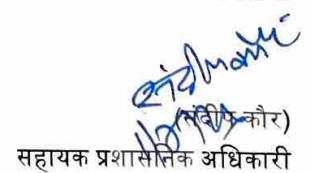 (संदीप कौर)
सहायक प्रशासनिक अधिकारी